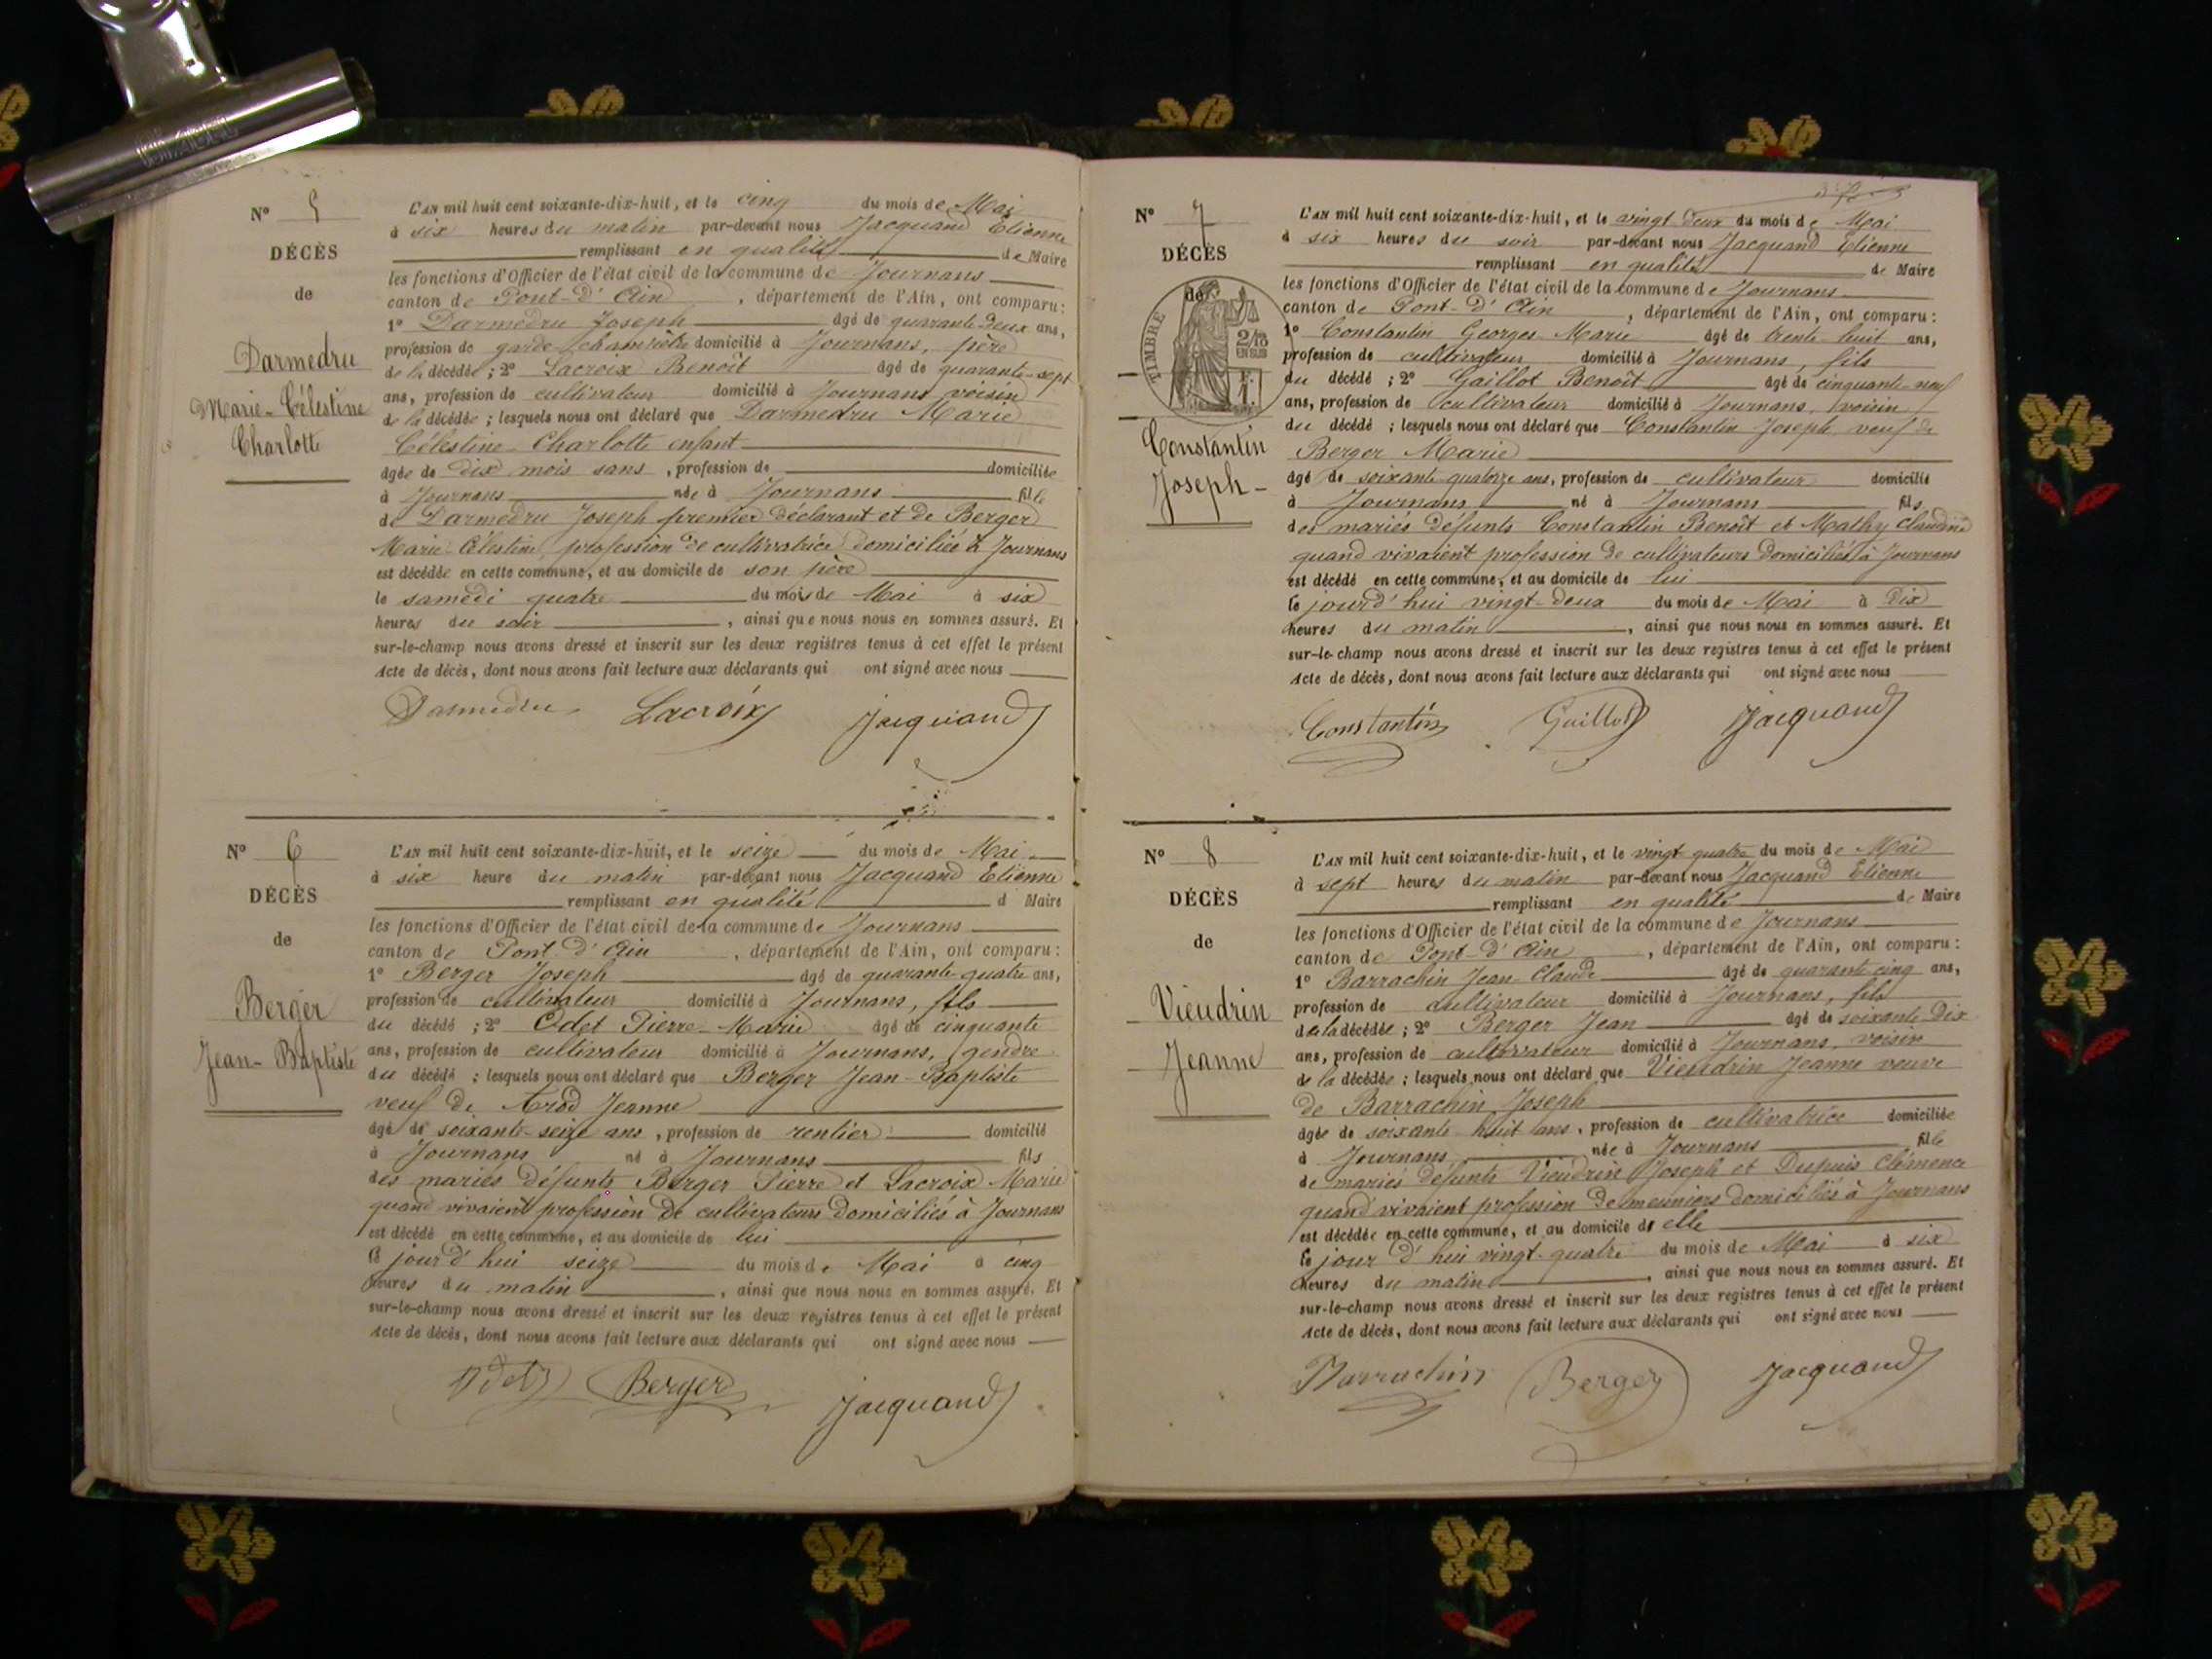 N° 5
DÉCÈS
de
Darmedru
Marie-Célestine
Charlotte
L'AN mil huit cent soixante-dix-huit, et le cinq du mois de Mai
à six heures du matin par-devant nous Jacquand Etienne
remplissant en qualité de Maire
les fonctions d'Officier de l'état civil de la commune de Journans
canton de Pont-d'Ain, département de l'Ain, ont comparu :
1° Darmedru Joseph âgé de quarante deux ans,
profession de garde champêtre domicilié à Journans, père
de la décédée ; 2° Lacroix Benoît âgé de quarante-sept
ans, profession de cultivateur domicilié à Journans voisin
de la décédée ; lesquels nous ont déclaré que Darmedru Marie
Célestine Charlotte enfant
âgée de dix mois sans, profession de domiciliée
à Journans née à Journans fille
de Darmedru Joseph premier déclarant et de Berger
Marie Célestine, profession de cultivatrice domiciliée à Journans
est décédée en cette commune, et au domicile de son père
le samedi quatre du mois de Mai à six
heures du soir, ainsi que nous nous en sommes assuré. Et
sur-le-champ nous avons dressé et inscrit sur les deux registres tenus à cet effet le présent
Acte de décès, dont nous avons fait lecture aux déclarants qui ont signé avec nous
Darmedru Lacroix Jacquand
N° 6
DÉCÈS
de
Berger
Jean-Baptiste
L'AN mil huit cent soixante-dix-huit, et le seize du mois de Mai
à six heure du matin par-devant nous Jacquand Etienne
remplissant en qualité d Maire
les fonctions d'Officier de l'état civil de la commune de Journans
canton de Pont d'Ain, département de l'Ain, ont comparu :
1° Berger Joseph âgé de quarante-quatre ans,
profession de cultivateur domicilié à Journans, fils
du décédé ; 2° Odet Pierre-Marie âgé de cinquante
ans, profession de cultivateur domicilié à Journans, gendre
du décédé ; lesquels nous ont déclaré que Berger Jean-Baptiste
veuf de Jeanne
âgé de soixante-seize ans, profession de rentier domicilié
à Journans né à Journans fils
des mariés défunts Berger Pierre et Lacroix Marie
quand vivaient profession de cultivateurs domiciliés à Journans
est décédé en cette commune, et au domicile de lui
le jourd'hui seize du mois de Mai à cinq
heures du matin, ainsi que nous nous en sommes assuré. Et
sur-le-champ nous avons dressé et inscrit sur les deux registres tenus à cet effet le présent
Acte de décès, dont nous avons fait lecture aux déclarants qui ont signé avec nous
Odet Berger Jacquand
N° 7
DÉCÈS
de
TIMBRE
2/10
EN SUS
Constantin
Joseph-
L'AN mil huit cent soixante-dix-huit, et le vingt deux du mois de Mai
à six heures du soir par-devant nous Jacquand Etienne
remplissant en qualité de Maire
les fonctions d'Officier de l'état civil de la commune de Journans
canton de Pont-d'Ain, département de l'Ain, ont comparu :
1° Constantin Georges-Marie âgé de trente-huit ans,
profession de cultivateur domicilié à Journans, fils
du décédé ; 2° Gaillot Benoît âgé de cinquante-neuf
ans, profession de cultivateur domicilié à Journans, voisin
du décédé ; lesquels nous ont déclaré que Constantin Joseph veuf de
Berger Marie
âgé de soixante quatorze ans, profession de cultivateur domicilié
à Journans né à Journans fils
des mariés défunts Constantin Benoît et Mathy Claudine
quand vivaient profession de cultivateurs domiciliés à Journans
est décédé en cette commune, et au domicile de lui
le jourd'hui vingt-deux du mois de Mai à dix
heures du matin, ainsi que nous nous en sommes assuré. Et
sur-le-champ nous avons dressé et inscrit sur les deux registres tenus à cet effet le présent
Acte de décès, dont nous avons fait lecture aux déclarants qui ont signé avec nous
Constantin Guillot Jacquand
N° 8
DÉCÈS
de
Vieudrin
Jeanne
L'AN mil huit cent soixante-dix-huit, et le vingt quatre du mois de Mai
à sept heures du matin par-devant nous Jacquand Etienne
remplissant en qualité de Maire
les fonctions d'Officier de l'état civil de la commune de Journans
canton de Pont-d'Ain, département de l'Ain, ont comparu :
1° Barrachin Jean-Claude âgé de quarante-cinq ans,
profession de cultivateur domicilié à Journans, fils
de la décédée ; 2° Berger Jean âgé de soixante-dix
ans, profession de cultivateur domicilié à Journans, voisin
de la décédée ; lesquels nous ont déclaré que Vieudrin Jeanne veuve
de Barrachin Joseph
âgée de soixante-huit ans, profession de cultivatrice domiciliée
à Journans née à Journans fille
de mariés défunts Vieudrin Joseph et Dupuis Clémence
quand vivaient profession de meuniers domiciliés à Journans
est décédée en cette commune, et au domicile de elle
le jour d'hui vingt-quatre du mois de Mai à six
heures du matin, ainsi que nous nous en sommes assuré. Et
sur-le-champ nous avons dressé et inscrit sur les deux registres tenus à cet effet le présent
Acte de décès, dont nous avons fait lecture aux déclarants qui ont signé avec nous
Barrachin Berger Jacquand